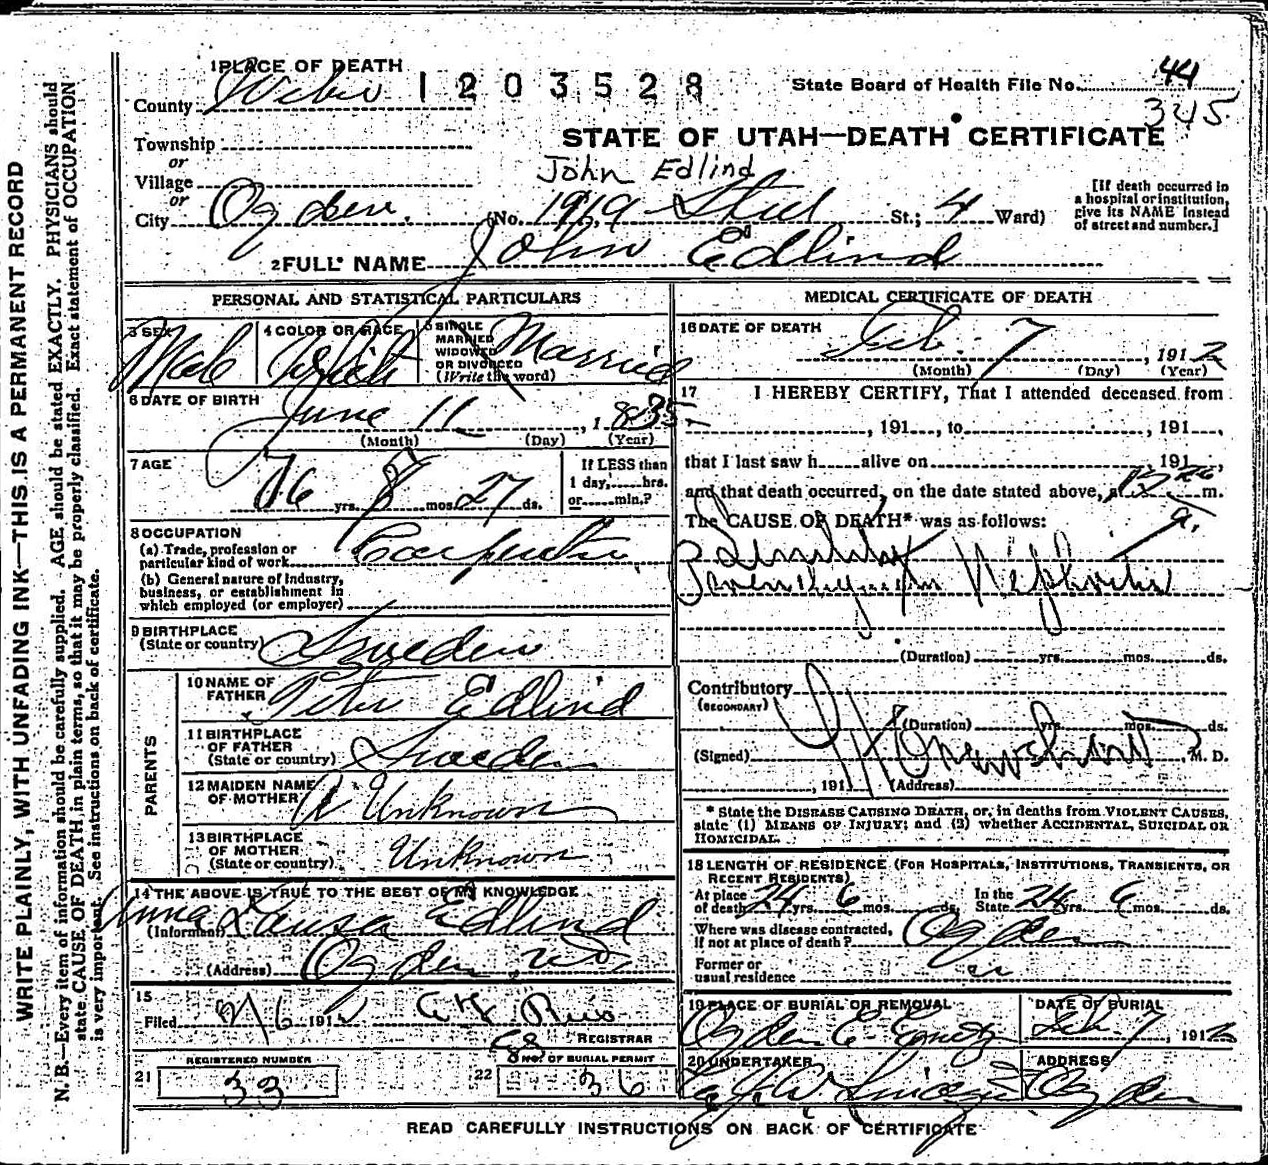 WRITE PLAINLY, WITH UNFADING INK—THIS IS A PERMANENT RECORD
N. B.—Every item of information should be carefully supplied. AGE should be stated EXACTLY. PHYSICIANS should
state CAUSE OF DEATH in plain terms, so that it may be properly classified. Exact statement of OCCUPATION
is very important. See instructions on back of certificate.
1 PLACE OF DEATH
County Weber 1203528 State Board of Health File No. 44
345
Township
or
Village
or
STATE OF UTAH—DEATH CERTIFICATE
John Edlind
City Ogden. (No. 1919 St.; 4 Ward)
[If death occurred in
a hospital or institution,
give its NAME instead
of street and number.]
2 FULL NAME John Edlind
PERSONAL AND STATISTICAL PARTICULARS
3 SEX Male
4 COLOR OR RACE White
5 SINGLE
MARRIED
WIDOWED
OR DIVORCED
(Write the word) Married
6 DATE OF BIRTH June 11, 1835
(Month) (Day) (Year)
7 AGE 76 yrs. 8 mos. 27 ds.
If LESS than
1 day, hrs.
or min.?
8 OCCUPATION
(a) Trade, profession or
particular kind of work Carpenter
(b) General nature of industry,
business, or establishment in
which employed (or employer)
9 BIRTHPLACE
(State or country) Sweden
PARENTS
10 NAME OF
FATHER Peter Edlind
11 BIRTHPLACE
OF FATHER
(State or country) Sweden
12 MAIDEN NAME
OF MOTHER Unknown
13 BIRTHPLACE
OF MOTHER
(State or country) Unknown
14 THE ABOVE IS TRUE TO THE BEST OF MY KNOWLEDGE
(Informant) Anna Edlind
(Address) Ogden
15
Filed 1912
REGISTRAR
REGISTERED NUMBER
21 33
NO. OF BURIAL PERMIT
22 36
MEDICAL CERTIFICATE OF DEATH
16 DATE OF DEATH
Feb. 7, 1912
(Month) (Day) (Year)
17 I HEREBY CERTIFY, That I attended deceased from
, 191 , to , 191 ,
that I last saw h alive on 191 ,
and that death occurred, on the date stated above, at m.
The CAUSE OF DEATH* was as follows:
Senility
Nephritis
(Duration) yrs. mos. ds.
Contributory
(SECONDARY)
(Duration) yrs. mos. ds.
(Signed) M. D.
, 191 (Address)
* State the DISEASE CAUSING DEATH, or, in deaths from VIOLENT CAUSES,
state (1) MEANS OF INJURY; and (3) whether ACCIDENTAL, SUICIDAL OR
HOMICIDAL.
18 LENGTH OF RESIDENCE (FOR HOSPITALS, INSTITUTIONS, TRANSIENTS, OR
RECENT RESIDENTS)
At place
of death 24 yrs. 6 mos. ds. In the
State 24 yrs. 6 mos. ds.
Where was disease contracted,
if not at place of death? Ogden
Former or
usual residence
19 PLACE OF BURIAL OR REMOVAL
Ogden
DATE OF BURIAL
Feb. 7, 1912
20 UNDERTAKER
ADDRESS
Ogden
READ CAREFULLY INSTRUCTIONS ON BACK OF CERTIFICATE